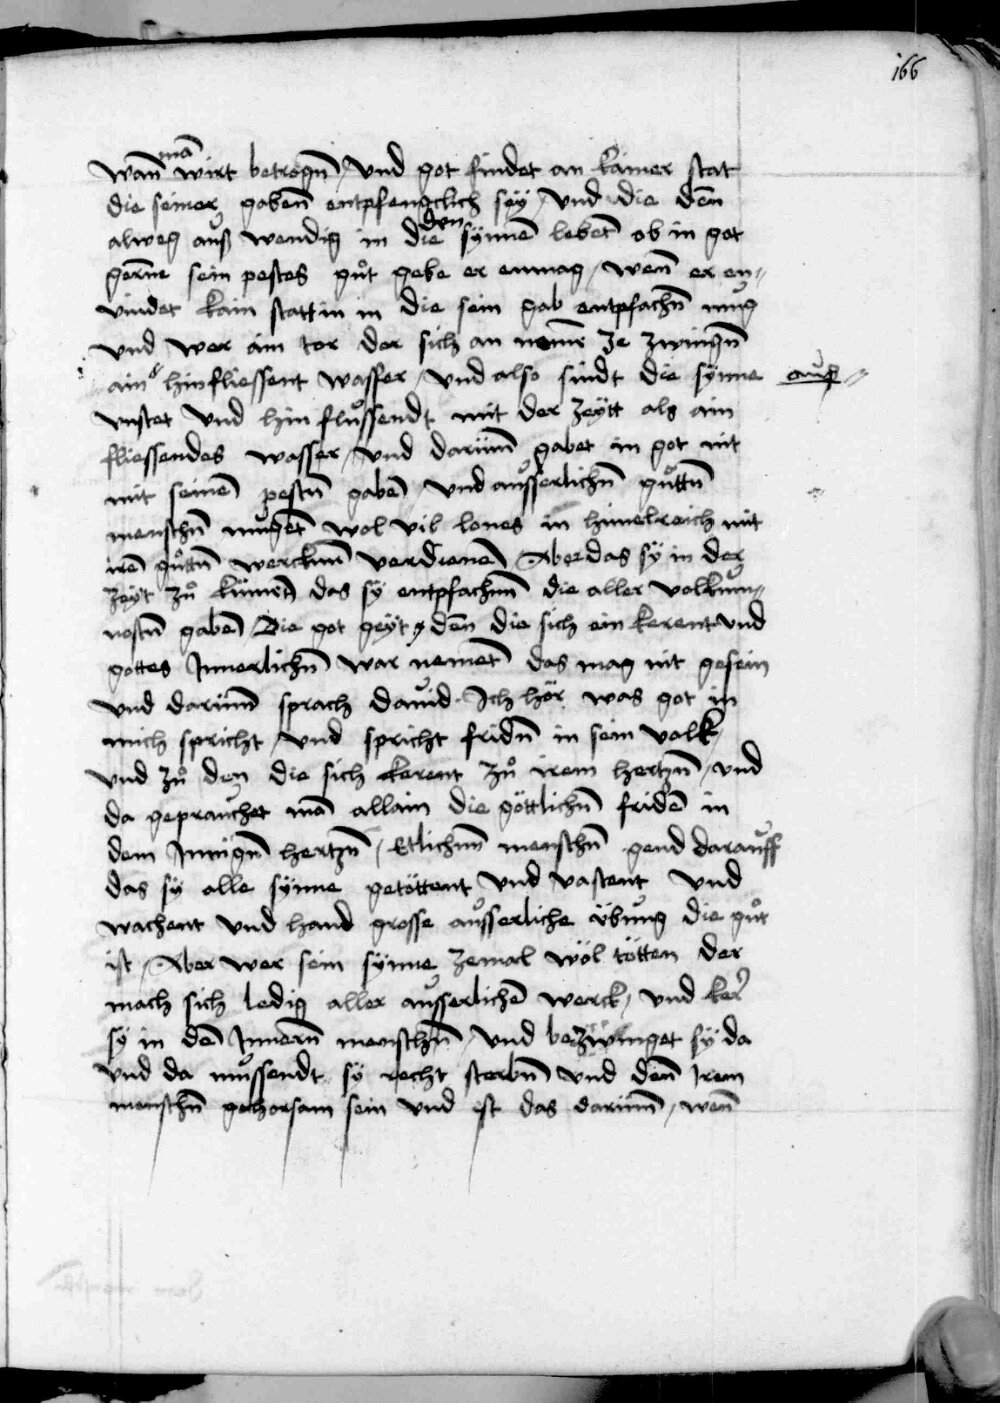 166
man
wan̄ wirt betrogn̄ / Vnd got findet an kainer stat
die seiner gabenn entpfencklich seÿ / Vnd die den̄
den
alweg auß wendig in die sÿnnē lebet ob in got
gerne sein pestes gůt gebe er enmag / wen̄ er en„
vindet kain statt in in die sein gab entpfachn̄ mug
Vnd wer ain tor der sich an nemē ze zwingn̄
ains hinfliessent wasser / Vnd also sindt die sÿnne auß
vnstet Vnd hin flüssendt mit der zeÿtt als ain
fliessendes wasser / Vnd darüm̄ gabet in got nit
mit seinē pestn̄ gabē / Vnd ausserlichn̄ gůttn̄
menschn̄ mugēt wol vil lones in himelreich mit
irē gůttn̄ werckenn verdienē / Aber das sÿ in der
zeÿt zů kümēt das sÿ entpfachenn die aller volkum„
nestn̄ gabē / Die got geÿt den̄ die sich ein kerent vnd
gottes Jnnerlichn̄ war nemēt das mag nit gesein
Vnd darüm̄ sprach dauid · Ich hör was got in
mich spricht / Vnd spricht fridn̄ in sein volk /
Vnd zů den die sich kerent zů irem hertzn̄ / vnd
da gepruchet mā allain die göttlichn̄ fridē in
dem Jnnign̄ hertzn̄ / Etlichenn menschn̄ gend darauff
das sÿ alle sÿnne getöttent Vnd vastent Vnd
wachent Vnd hand grosse ausserliche übung die gůt
ist / Aber wer sein sÿnne zemal wöl tötten der
mach sich ledig aller ausserlichē werck / Vnd ker
sÿ in dē Jnnern̄ menschn̄ / Vnd bezwinget sÿ da
Vnd da müssendt sÿ recht sterbn̄ Vnd den̄ Jrem
menschn̄ gehorsam sein Vnd ist das darüm̄ / wen̄